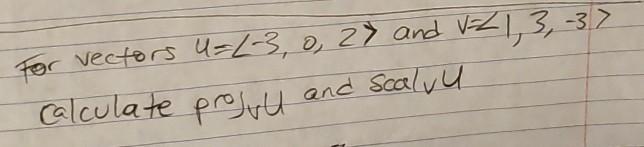 For vectors u=<-3, 0, 2> and v=<1, 3, -3>
calculate projvu and scalvu